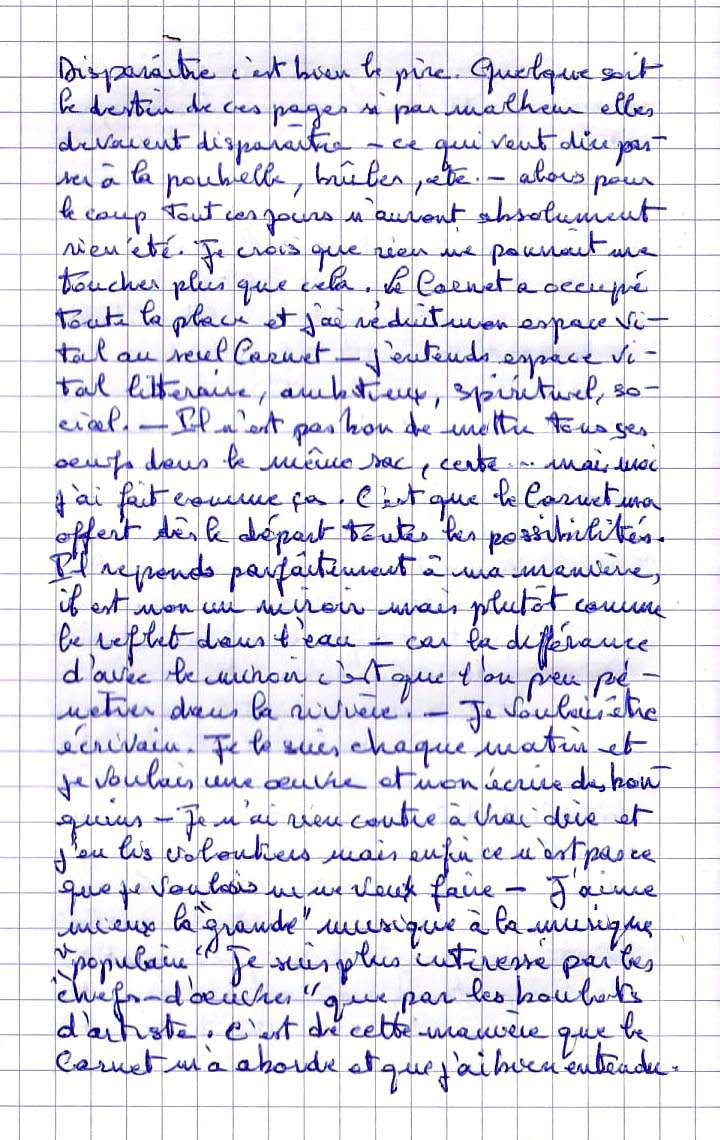 Disparaître c'est bien le pire. Quelque soit
le destin de ces pages si par malheur elles
devaient disparaître – ce qui veut dire pas-
ser à la poubelle, brûler, etc. – alors pour
le coup tout ces jours n'auront absolument
rien été. Je crois que rien ne pourrait me
toucher plus que cela. Le Carnet a occupé
toute la place et j'ai réduit mon espace vi-
tal au seul Carnet – j'entends espace vi-
tal litteraire, ambitieux, spirituel, so-
cial. – Il n'est pas bon de mettre tous ses
oeufs dans le même sac, certe... mais moi
j'ai fait comme ça. C'est que le Carnet m'a
offert dès le départ toutes les possibilités.
Il reponds parfaitement à ma manière,
il est non un miroir mais plutôt comme
le reflet dans l'eau – car la différance
d'avec le miroir c'est que l'on peu pé-
nétrer dans la rivière. – Je voulais être
écrivain. Je le suis chaque matin et
je voulais une œuvre et non écrire des bou
quins – Je n'ai rien contre à vrai dire et
j'en lis volontiers mais enfin ce n'est pas ce
que je voulais ni ne veux faire – J'aime
mieux la "grande" musique à la musique
"populaire" Je suis plus interessé par les
"chefs-d'œuvres" que par les boulots
d'artiste. C'est de cette manière que le
Carnet m'a abordé et que j'ai bien entendu.